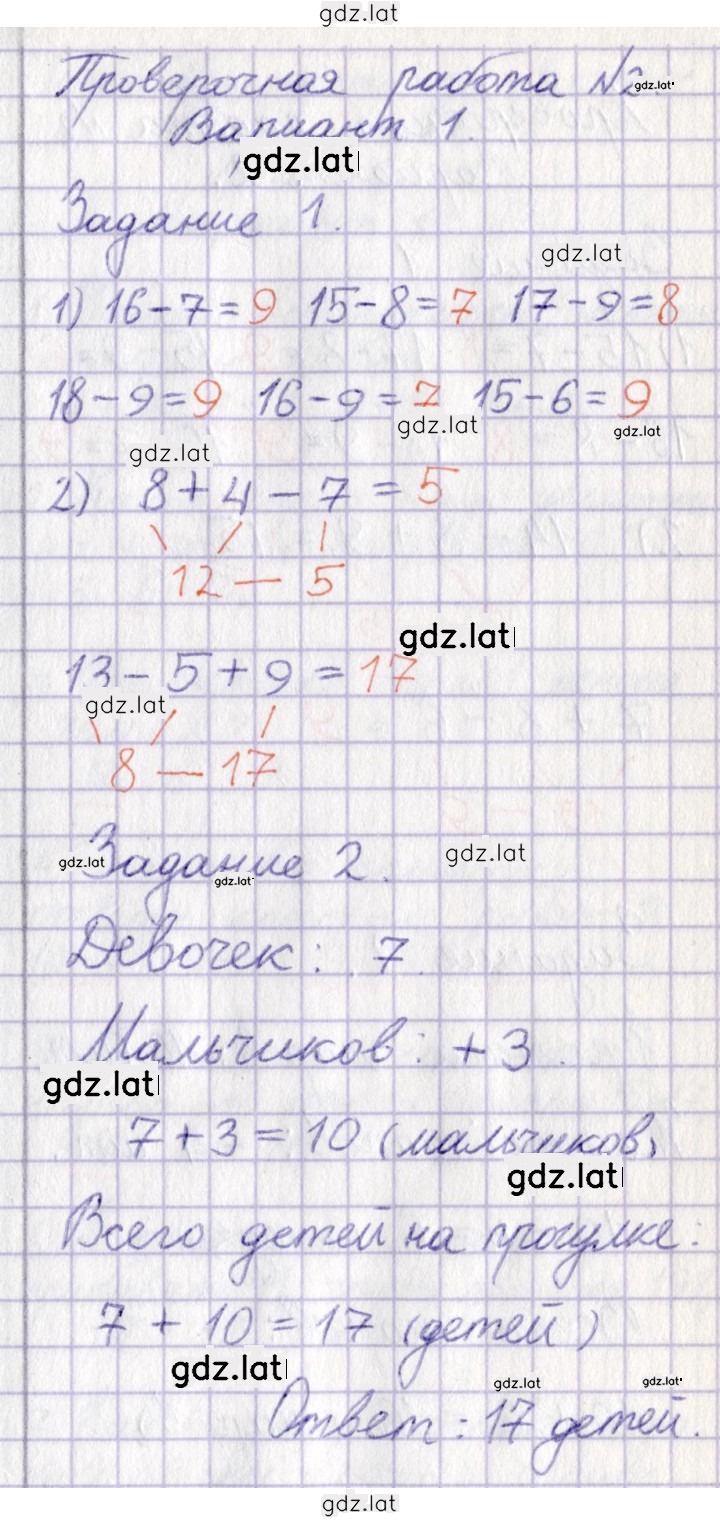 gdz.lat
Проверочная работа №2 gdz.lat
Вариант 1.
gdz.lat
Задание 1.
gdz.lat
1) 16-7=9 15-8=7 17-9=8
18-9=9 16-9=7 15-6=9
gdz.lat gdz.lat
gdz.lat
2) 8+4-7=5
12 — 5
gdz.lat
13-5+9=17
gdz.lat
8 — 17
gdz.lat Задание 2. gdz.lat
gdz.lat
Девочек: 7.
Мальчиков: +3.
gdz.lat
7+3=10 (мальчиков)
gdz.lat
Всего детей на прогулке:
7+10=17 (детей)
gdz.lat gdz.lat gdz.lat
Ответ: 17 детей.
gdz.lat